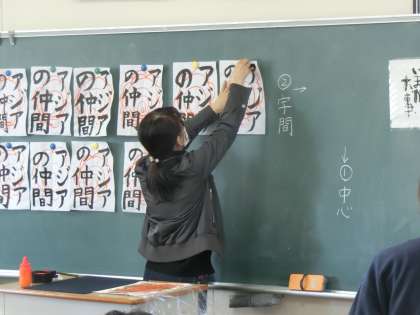 アジア
の仲間
アジア
の仲間
アジア
の仲間
アジア
の仲間
アジア
の仲間
アジア
アジア
の仲間
アジア
の仲間
アジア
の仲間
②字間
→
↓
①中心